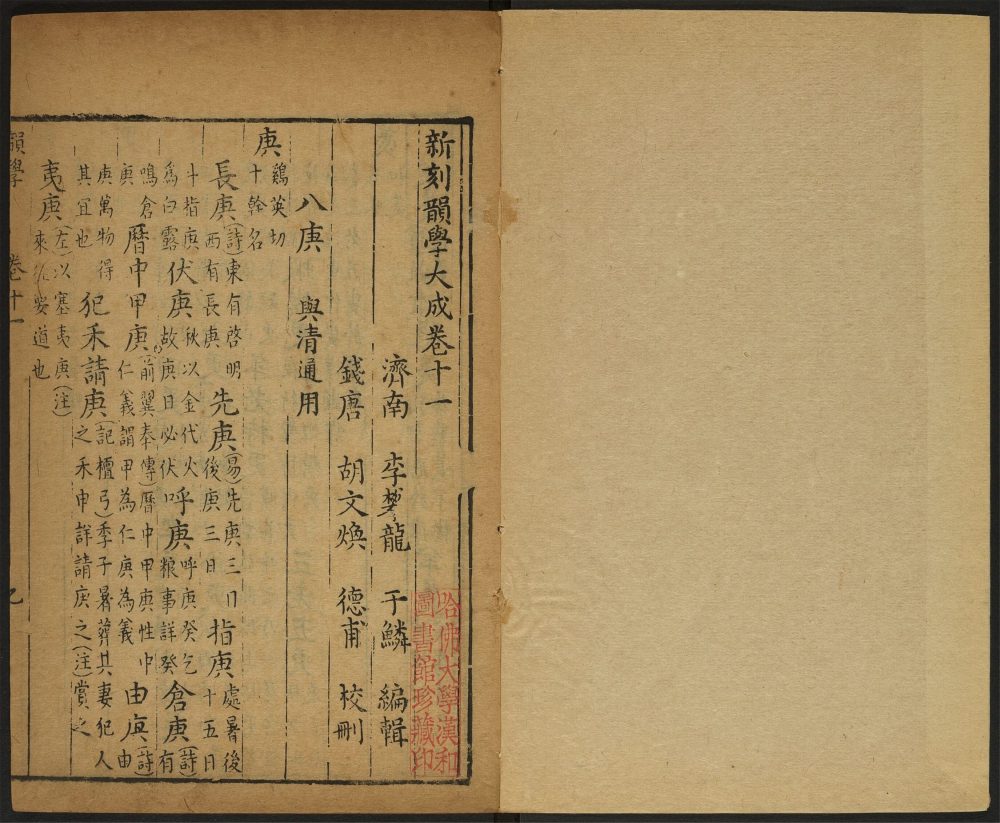 新刻韻學大成卷十一
濟南 李攀龍 于鱗 編輯
錢唐 胡文煥 德甫 校刪
八庚 與清通用
庚 鷄英切十幹名
長庚(詩)東有啓明西有長庚 先庚(易)先庚三日後庚三日 指庚處暑後十五日
斗指庚為白露 伏庚秋以金代火故庚日必伏 呼庚呼庚癸乞粮事詳癸 倉庚(詩)有
鳴倉庚 曆中甲庚(前翼奉傳)曆中甲庚性中仁義謂甲為仁庚為義 由庚(詩)由
庚萬物得其宜也 犯禾請庚(記檀弓)季子臯葬其妻犯人之禾申詳請庚之(注)賞之
夷庚(左)以塞夷庚(注)來徃要道也
韻學 卷十一
哈佛大學漢和
圖書館珍藏印